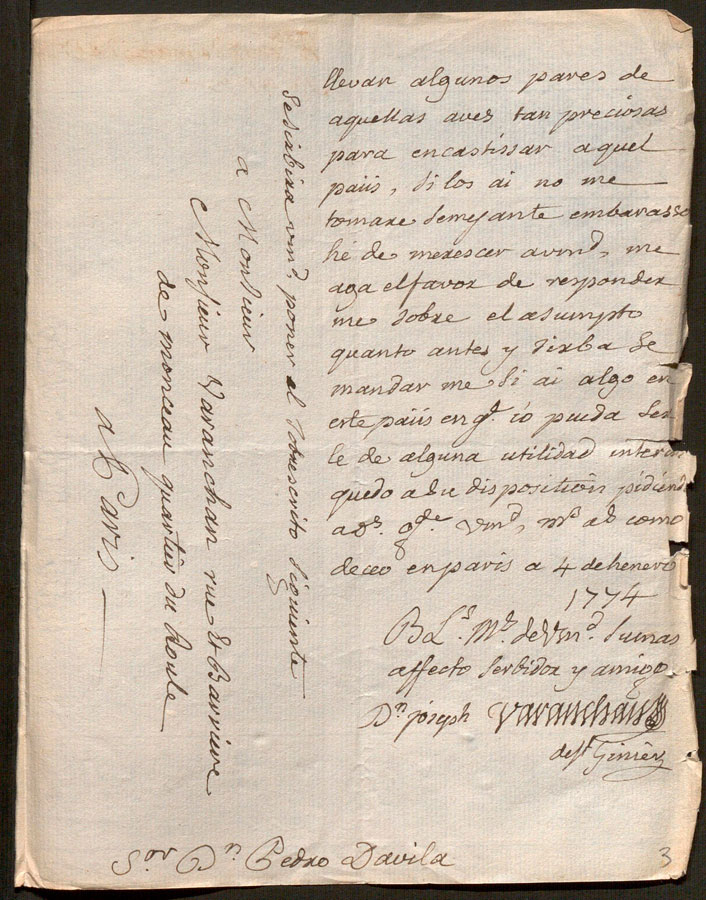 llevar algunos pares de
aquellas aves tan preciosas
para encastissar aquel
paiis, si los ai no me
tomare semejante embarasso
hé de merescer a vmd, me
aga el favor de responder
me sobre el asumpto
quanto antes y sirba se
mandar me si ai algo en
este paiis en qe. io pueda ser
le de alguna utilidad interin
quedo a su disposition pidiendo
a Ds. gde. Vmd, ms as como
deceo en paris a 4 de henero
1774
B Ls. Ms. de Vmd. su mas
affecto serbidor y amigo
Dn joseph Varanchan
de St Giniés
Sor Dn. Pedro Davila
3
Se sirbira vmd. poner el sobrescrito siguiente
a Monsieur
Monsieur Varanchan rue et Barriere
de monceau quartier du Roule
a Paris